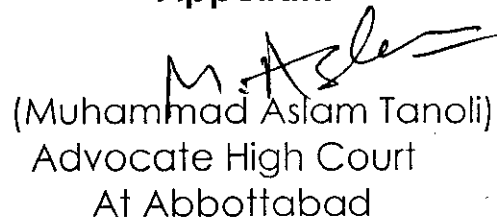 M. Aslam
(Muhammad Aslam Tanoli)
Advocate High Court
At Abbottabad